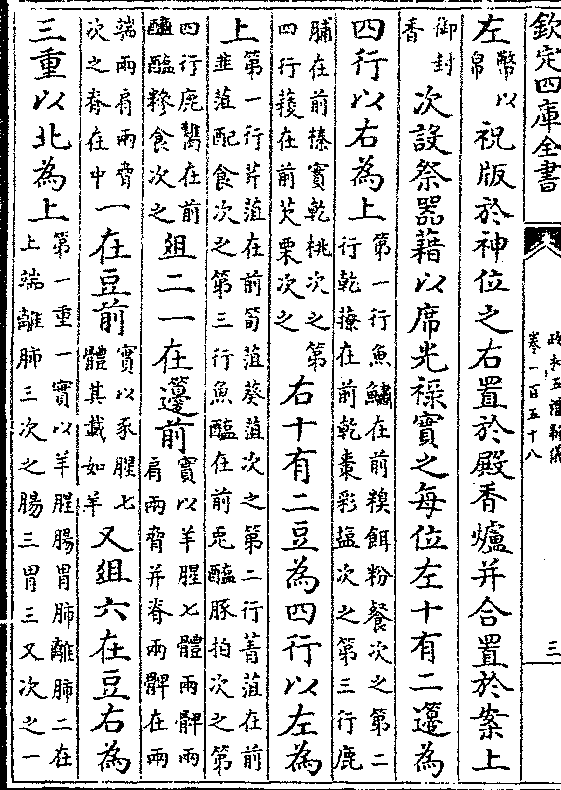 欽定四庫全書
政和五禮新儀
卷一百五十八
三
左幣以帛祝版於神位之右置於殿香爐并合置於案上
御封香次設祭器藉以席光禄實之每位左十有二籩為
四行以右為上第一行魚鱐在前糗餌粉餈次之第二行乾䕩在前乾棗彩塩次之第三行鹿
脯在前榛實乾桃次之第四行蔆在前芡栗次之右十有二豆為四行以左為
上第一行芹菹在前筍菹葵菹次之第二行菁菹在前韭菹配食次之第三行魚醢在前兎醢豚拍次之第
四行鹿臡在前醓醢糝食次之俎二一在籩前實以羊腥七體兩髀兩肩兩脅并脊兩髀在兩
端兩肩兩脅次之脊在中一在豆前實以豕腥七體其載如羊又俎六在豆右為
三重以北為上第一重一實以羊腥腸胃肺離肺二在上端離肺三次之腸三胃三又次之一